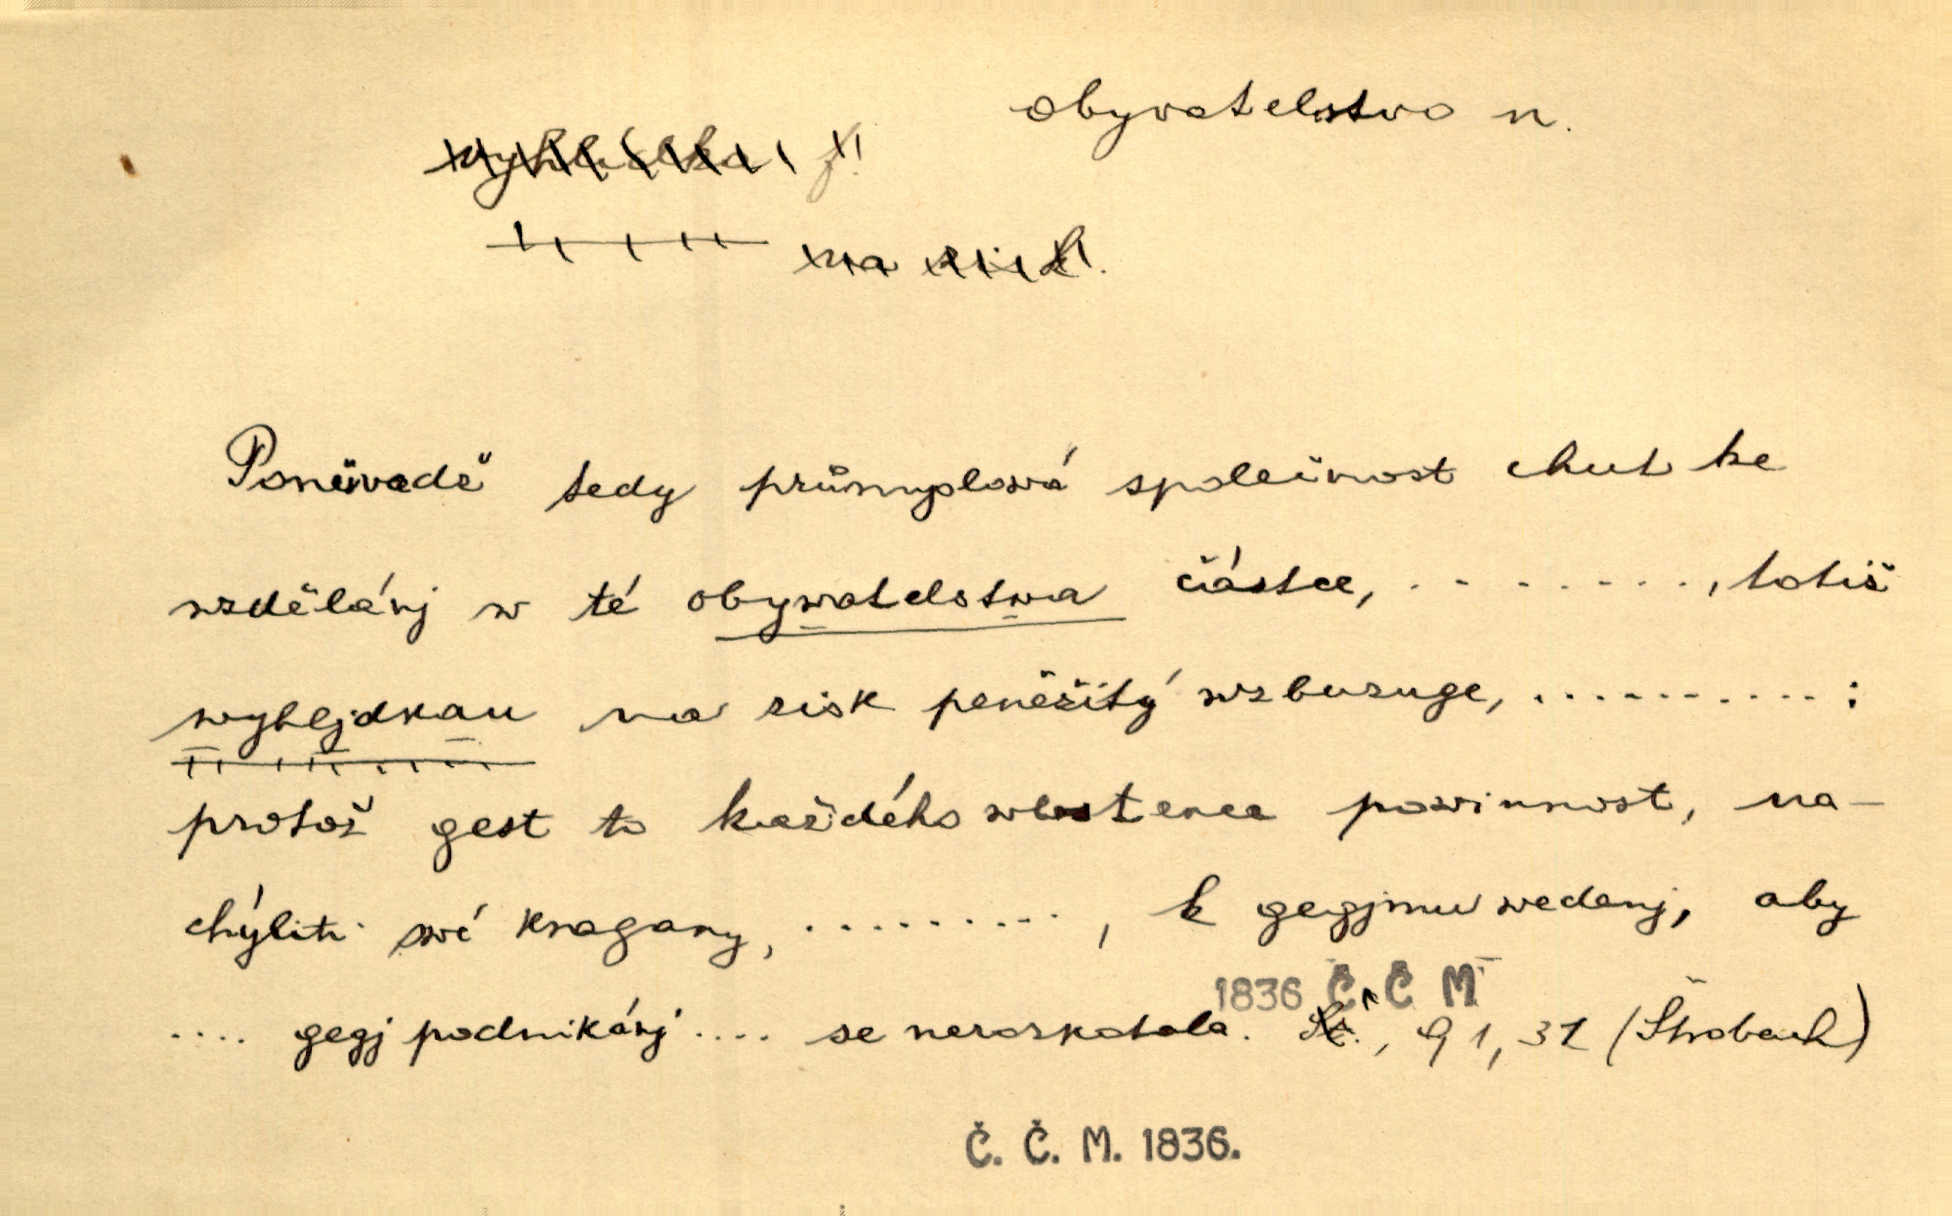 obyvatelstvo n.
vyhlídka f.
na risk.
Poněvadž tedy průmyslová společnost chut ke
wzdělánj w té obywatelstwa částce, . . . . . . . . , totiž
wyhljdkau na risk peněžitý wzbuzuge, . . . . . . . . . . :
protož gest to každého wlastence powinnost, na-
chýliti swé kragany, . . . . . . . . . , k gegjmu wedenj, aby
.... gegj podnikánj .... se nerozkotala. , 91, 31 (Štrobach)
1836 Č Č M
Č. Č. M. 1836.